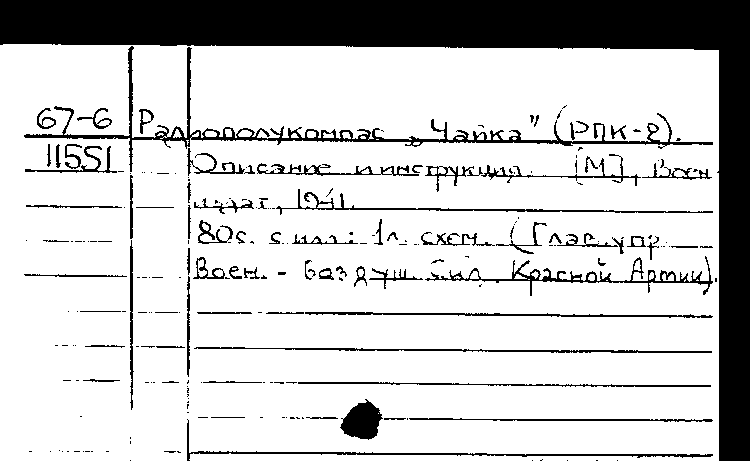 67-6 Радиополукомпас „Чайка" (РПК-2).
11551 Описание и инструкция. [М], Воен-
издат, 1941.
80с. с илл; 1л. схем. (Глав. упр
Воен. - Воздуш. Сил. Красной Армии).